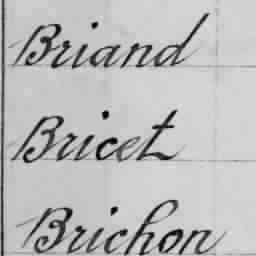 Briand
Bricet
Brichon